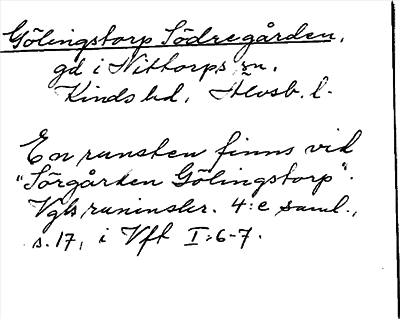 Gölingstorp Södregården,
gd i Nittorps sn.
Kinds hd, Älvsb. l.
En runsten finns vid
"Sörgården Gölingstorp".
Vgls runinskr. 4:e saml.,
s. 17, i Vft I:6-7.